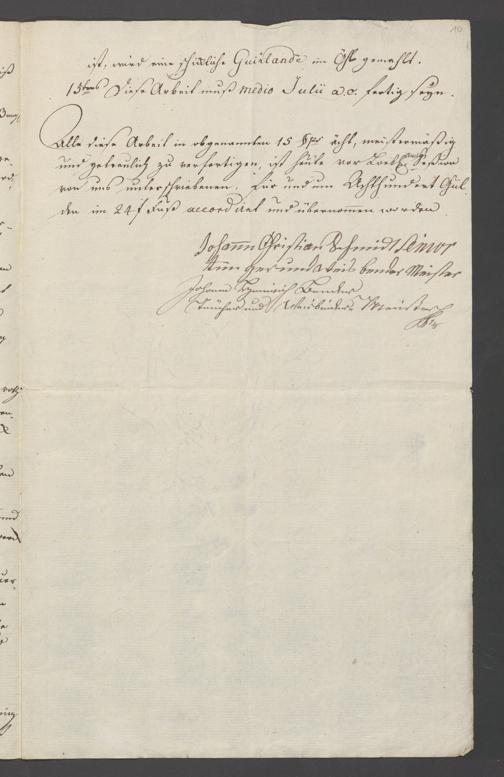 10
ist, wird eine schickliche Guirlande im Öhl gemahlt.
15tens Diese Arbeit muß medio Julii a.c. fertig seyn.
Alle diese Arbeit in obgenannten 15 ächt, meistermäßig
und getreulich zu verfertigen, ist heute vor Session
von uns unterschriebenen, für und um Achthundert Gul,,
den im 24 f Fuß accordiret und übernomen worden
Johann Christian Schmidt Senior
und Weisbender Meister
Johann Heinrich Bender
Tüncher und Weisbinder Meister